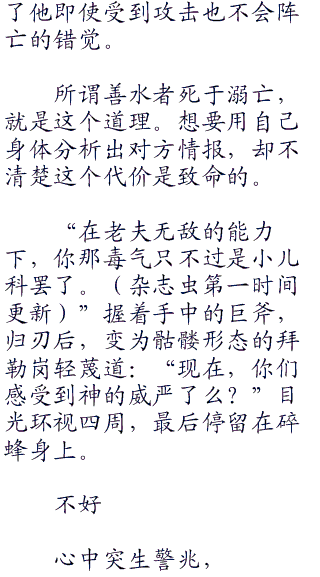 了他即使受到攻击也不会阵
亡的错觉。
所谓善水者死于溺亡，
就是这个道理。想要用自己
身体分析出对方情报，却不
清楚这个代价是致命的。
“在老夫无敌的能力
下，你那毒气只不过是小儿
科罢了。（杂志虫第一时间
更新）”握着手中的巨斧，
归刃后，变为骷髅形态的拜
勒岗轻蔑道：“现在，你们
感受到神的威严了么？”目
光环视四周，最后停留在碎
蜂身上。
不好
心中突生警兆，